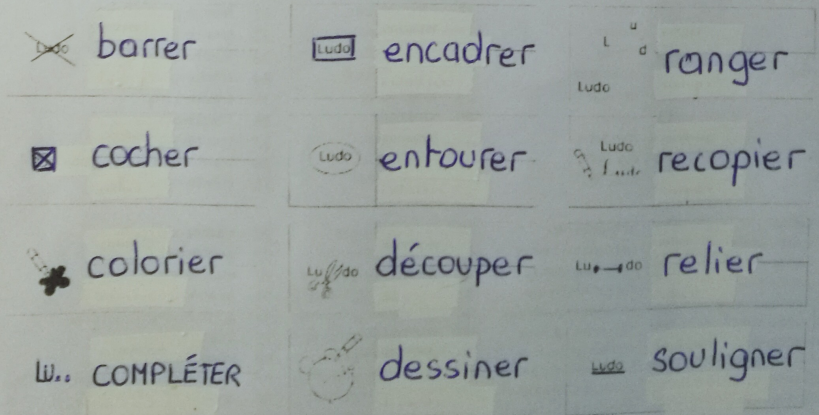 Ludo barrer
Ludo encadrer
L u d ranger
Ludo
cocher
Ludo entourer
Ludo recopier
Ludo
colorier
Lu do découper
Lu do relier
Lu.. COMPLÉTER
dessiner
Ludo souligner